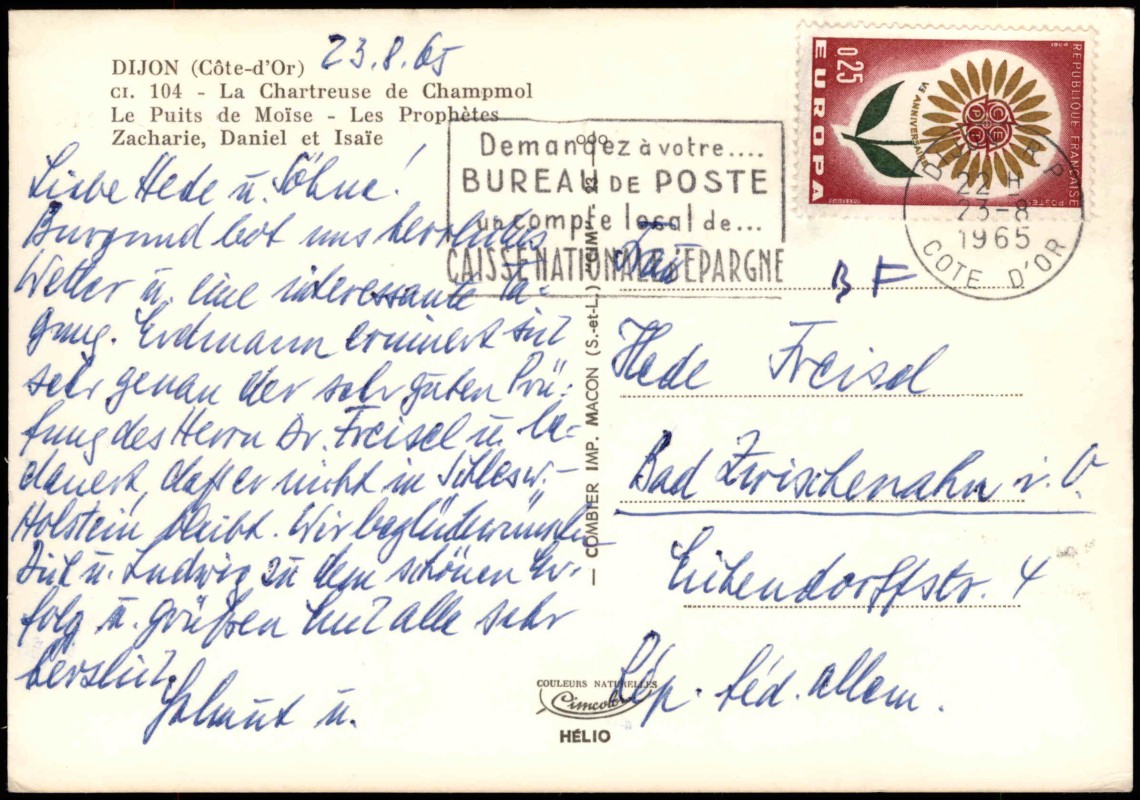 DIJON (Côte-d'Or)
23.8.65
CI. 104 - La Chartreuse de Champmol
Le Puits de Moïse - Les Prophètes
Zacharie, Daniel et Isaïe
Liebe Hede u. Söhne!
Burgund bot uns herrliches
Wetter u. eine interessante Ta-
gung. Erdmann erinnert sich
sehr genau der sehr guten Prü-
fung des Herrn Dr. Freisel u. be-
dauert, daß er nicht in Schlesw.-
Holstein bleibt. Wir beglückwünschen
Dich u. Ludwig zu dem schönen Er-
folg u. grüßen Euch alle sehr
herzlich.
Helmut u.
Demandez à votre....
BUREAU DE POSTE
un compte local de...
CAISSE NATIONALE D'EPARGNE
0,25
EUROPA
Ve ANNIVERSAIRE
CEPT
REPUBLIQUE FRANÇAISE
POSTES
DIJON R P
22 H
23-8
1965
COTE D'OR
B F
Frau
Hede Freisel
Bad Zwischenahn i. O
Eichendorffstr. 4
Rép. féd. allem.
— COMBIER IMP. MACON (S.-et-L.) "CIM"
COULEURS NATURELLES
Cimcolor
HÉLIO